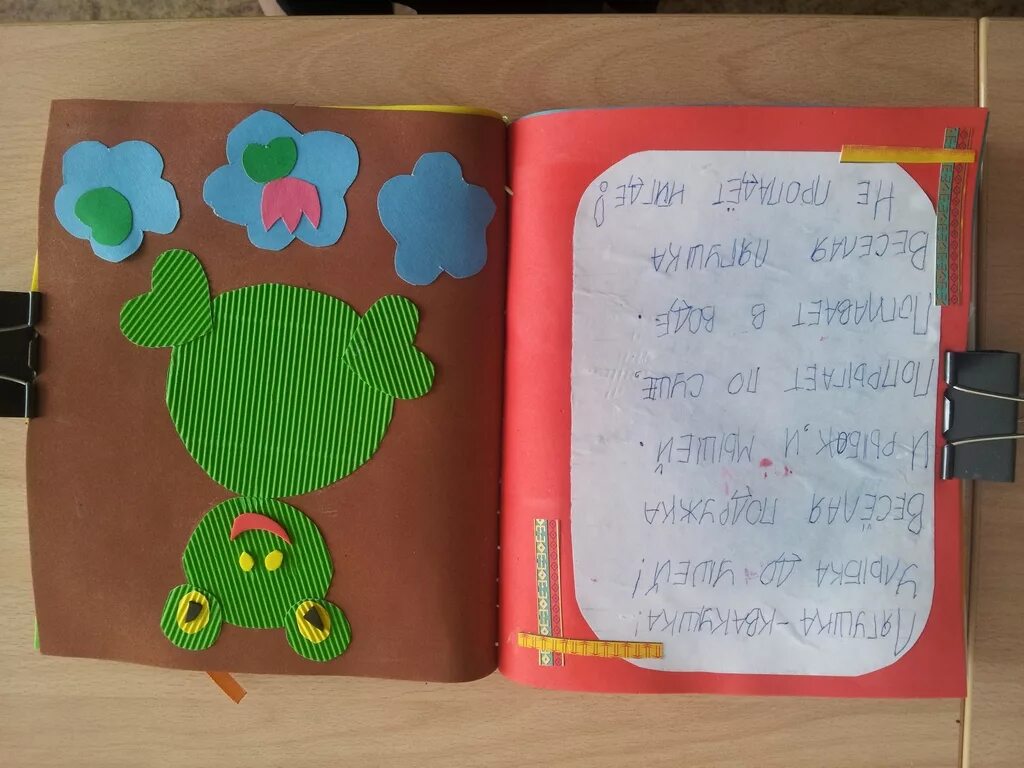 ЛЯГУШКА-КВАКУШКА!
УЛЫБКА ДО УШЕЙ!
ВЕСЁЛАЯ ПОДРУЖКА
И РЫБОК, И МЫШЕЙ.
ПОПРЫГАЕТ ПО СУШЕ,
ПОПЛАВАЕТ В ВОДЕ.
ВЕСЕЛАЯ ЛЯГУШКА
НЕ ПРОПАДЁТ НИГДЕ!